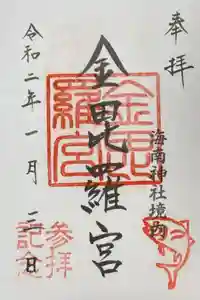 奉拝
海南神社境内
金毘羅宮
令和二年一月三日
金毘羅宮
参拝記念